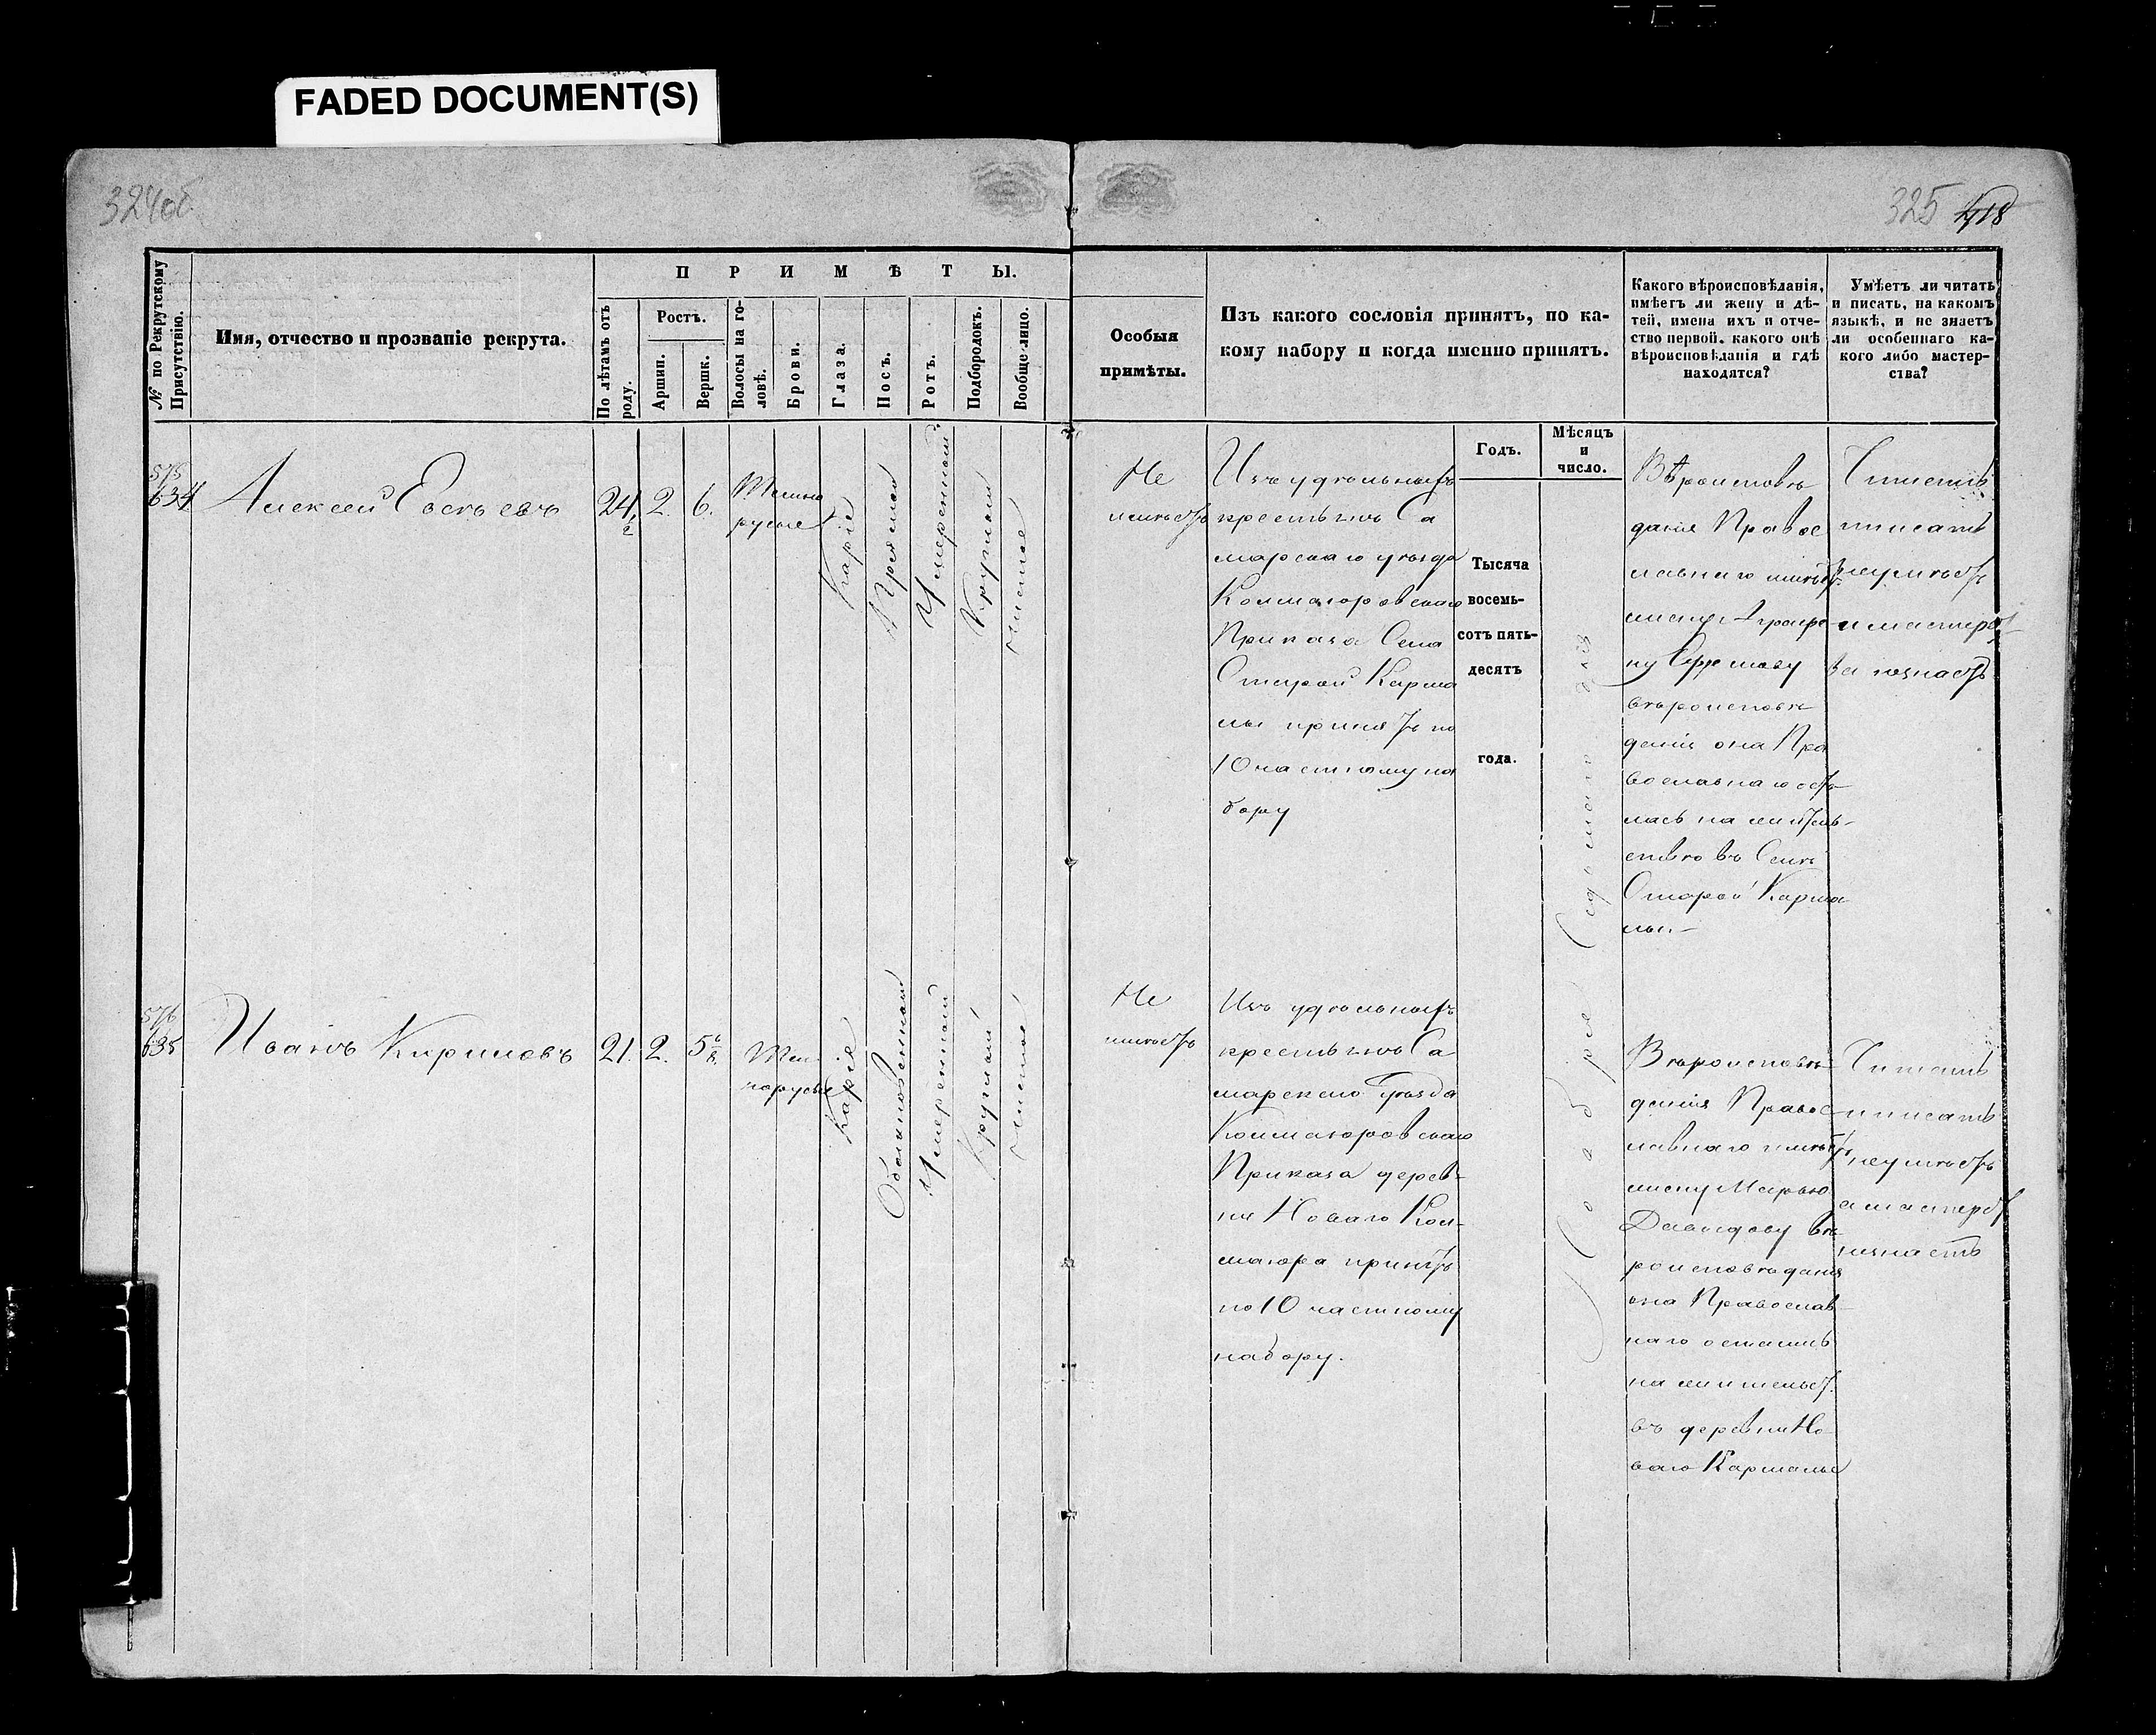 FADED DOCUMENT(S)
324об
325 418
№ по Рекрутскому Присутствію.
Имя, отчество и прозваніе рекрута.
ПРИМѢТЫ.
По лѣтамъ отъ роду.
Ростъ.
Аршин.
Вершк.
Волосы на головѣ.
Брови.
Глаза.
Носъ.
Ротъ.
Подбородокъ.
Вообще лицо.
Особыя
примѣты.
Изъ какого сословія принятъ, по ка-
кому набору и когда именно принятъ.
Какого вѣроисповѣданія,
имѣетъ ли жену и дѣ-
тей, имена ихъ и отче-
ство первой, какого онѣ
вѣроисповѣданія и гдѣ
находятся?
Умѣетъ ли читать
и писать, на какомъ
языкѣ, и не знаетъ
ли особеннаго ка-
кого либо мастер-
ства?
Годъ.
Мѣсяцъ
и
число.
Тысяча
восемь-
сотъ пять-
десятъ
года.
575
634
Алексей Евсѣевъ
24
2.
6.
Темно
русые
Каріе
Прямой
Умеренный
Круглой
чистое
Не
имѣетъ
Изъ удѣльныхъ
крестьянъ Са
марскаго уѣзда
Приказа Села
Старой Карма
лы принятъ по
10 частному на
бору
Вѣроисповѣ
данія Правос
лавнаго имѣетъ
жену
ну
вѣроисповѣ
данія она Пра
вославнаго оста
лась на житель-
ствѣ въ Селѣ
Старой Карма
лы.-
Читать
писать
неумѣетъ
и мастерст
ва незнаетъ
576
635
Иванъ Кириловъ
21.
2.
5 6/8.
Тем
норусые
Каріе
Обыкновенной
Умеренный
Круглой
чистое
Не
имѣетъ
Изъ удѣльныхъ
крестьянъ Са
марскаго Уѣзда
Приказа дерев-
ни Новаго
принятъ
по 10 частному
набору.
Вѣроисповѣ-
данія Правос-
лавнаго имѣетъ
жену Марью
Давыдову вѣ-
роисповѣданія
она Православ-
наго осталась
на жительст.
въ деревни Но-
ваго Кармалы
Читать
писать
неумѣетъ
а мастерст
незнаетъ